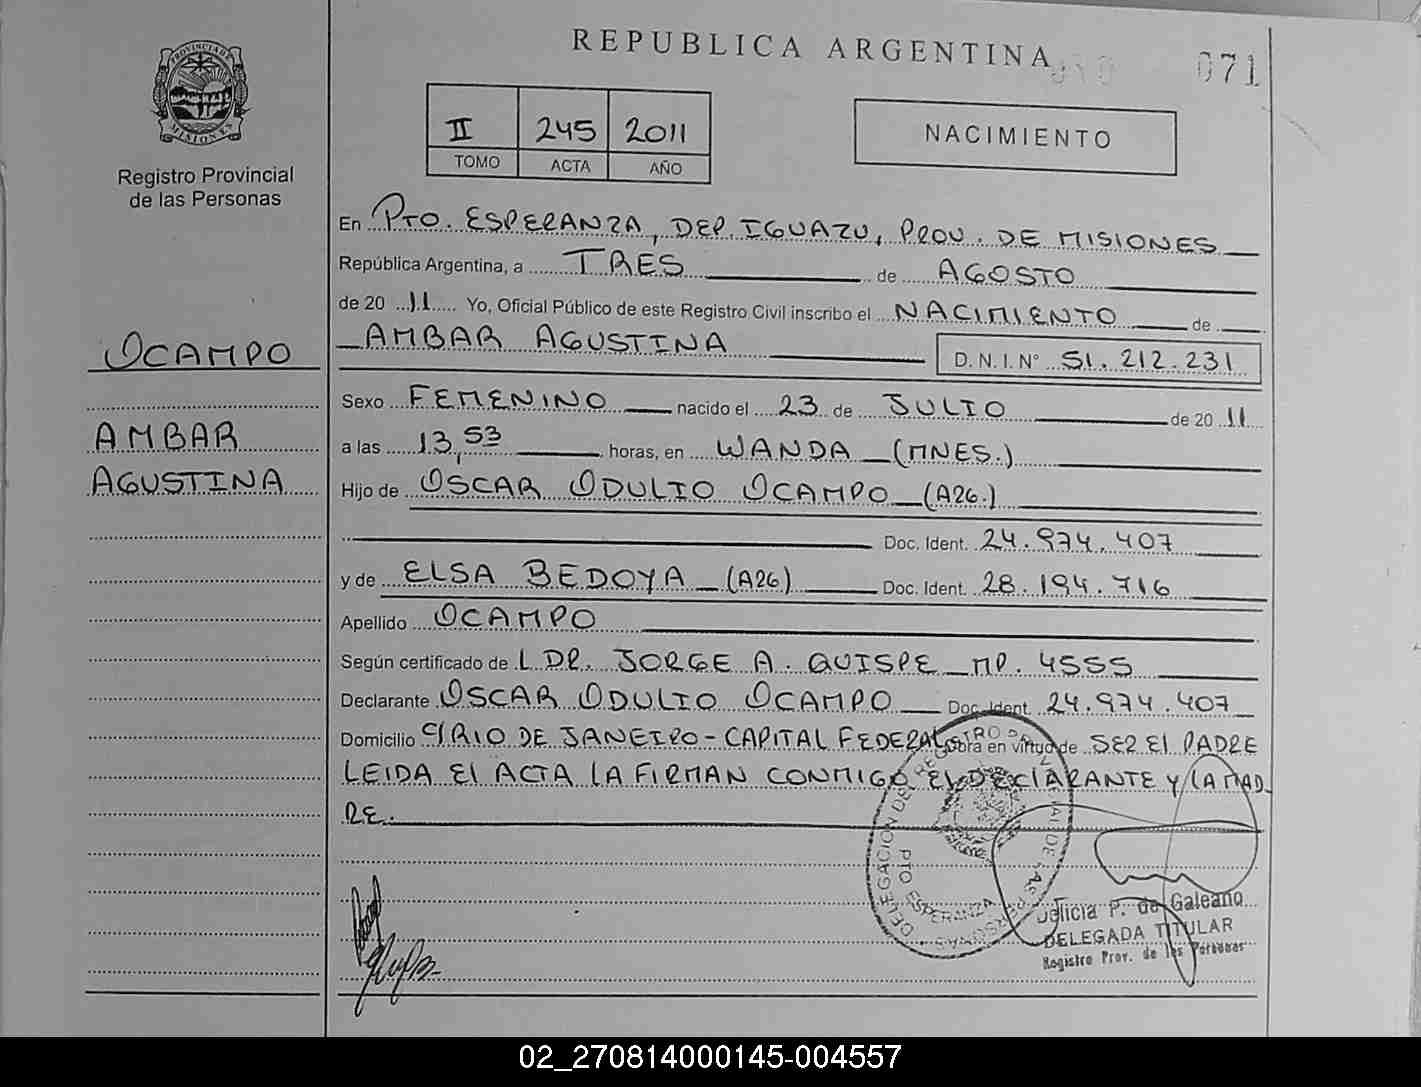 REPUBLICA ARGENTINA
071
PROVINCIA DE MISIONES
Registro Provincial
de las Personas
II 245 2011
TOMO ACTA AÑO
NACIMIENTO
En PTO. ESPERANZA, DEP. IGUAZU, PROV. DE MISIONES
República Argentina, a TRES de AGOSTO
de 20 11 Yo, Oficial Público de este Registro Civil inscribo el NACIMIENTO de
AMBAR AGUSTINA D. N. I. N° 51.212.231
OCAMPO
AMBAR
AGUSTINA
Sexo FEMENINO nacido el 23 de JULIO de 20 11
a las 13,53 horas, en WANDA (MNES.)
Hijo de OSCAR ODULIO OCAMPO (A26.)
Doc. Ident. 24.974.407
y de ELSA BEDOYA (A26) Doc. Ident. 28.194.716
Apellido OCAMPO
Según certificado de L DR. JORGE A. QUISPE MP. 4555
Declarante OSCAR ODULIO OCAMPO Doc. Ident. 24.974.407
Domicilio C/ RIO DE JANEIRO - CAPITAL FEDERAL Obra en virtud de SER EL PADRE
LEIDA EL ACTA LA FIRMAN CONMIGO EL DECLARANTE Y LA MAD
RE.
DELEGACION DEL REGISTRO PROVINCIAL DE LAS PERSONAS
PTO ESPERANZA
Delicia P. de Galeano
DELEGADA TITULAR
Registro Prov. de las Personas
02_270814000145-004557